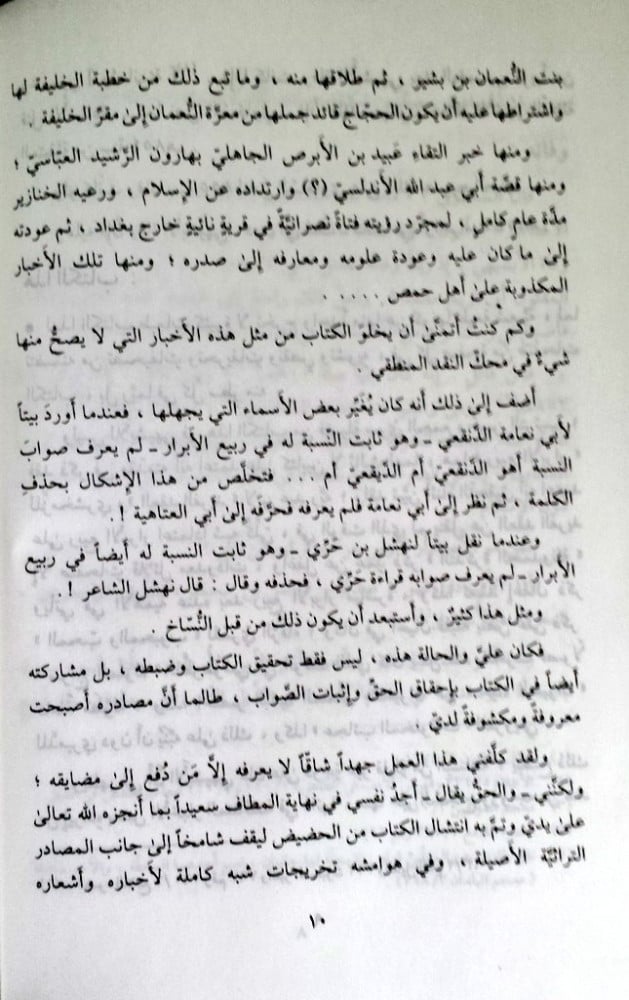 بنت النُّعمان بن بشير ، ثم طلاقها منه ، وما تبع ذلك من خطبة الخليفة لها
واشتراطها عليه أن يكون الحجّاج قائد جملها من معرّة النُّعمان إلىٰ مقرّ الخليفة .
ومنها خبر التقاء عَبيد بن الأبرص الجاهليّ بهارون الرَّشيد العبّاسيّ ؛
ومنها قصّة أبي عبد الله الأندلسيّ (؟) وارتداده عن الإسلام ، ورعيه الخنازير
مدّة عام كامل ، لمجرّد رؤيته فتاةً نصرانيَّةً في قريةٍ نائيةٍ خارج بغداد ، ثم عودته
إلىٰ ما كان عليه وعودة علومه ومعارفه إلىٰ صدره ؛ ومنها تلك الأخبار
المكذوبة علىٰ أهل حمص . . . . .
وكم كنتُ أتمنّىٰ أن يخلوَ الكتاب من مثل هذه الأخبار التي لا يصحُّ منها
شيءٌ في محكّ النقد المنطقي .
أضف إلىٰ ذلك أنه كان يُغَيِّر بعض الأسماء التي يجهلها ، فعندما أوردَ بيتاً
لأبي نعامة الدَّنقعي ـ وهو ثابت النِّسبة له في ربيع الأبرار ـ لم يعرف صوابَ
النسبة أهو الدَّنقعيّ أم الدَّيقعيّ أم ... فتخلّص من هذا الإشكال بحذفِ
الكلمة ، ثم نظر إلىٰ أبي نعامة فلم يعرفه فحرَّفه إلىٰ أبي العتاهية ! .
وعندما نقل بيتاً لنهشل بن حَرّي ـ وهو ثابت النسبة له أيضاً في ربيع
الأبرار ـ لم يعرف صوابه قراءة حَرّي ، فحذفه وقال : قال نهشل الشاعر ! .
ومثل هذا كثيرٌ ، وأستبعد أن يكون ذلك من قبل النُّسّاخ .
فكان عليَّ والحالة هذه ، ليس فقط تحقيق الكتاب وضبطه ، بل مشاركته
أيضاً في الكتاب بإحقاق الحقّ وإثبات الصَّواب ، طالما أنَّ مصادره أصبحت
معروفةً ومكشوفةً لديّ .
ولقد كلَّفني هذا العمل جهداً شاقّاً لا يعرفه إلاَّ مَن دُفع إلىٰ مضايقه ؛
ولكنَّني ـ والحقُّ يقال ـ أجدُ نفسي في نهاية المطاف سعيداً بما أنجزه الله تعالىٰ
علىٰ يديّ وتمَّ به انتشال الكتاب من الحضيض ليقف شامخاً إلىٰ جانب المصادر
التراثيَّة الأصيلة ، وفي هوامشه تخريجات شبه كاملة لأخباره وأشعاره
١٠